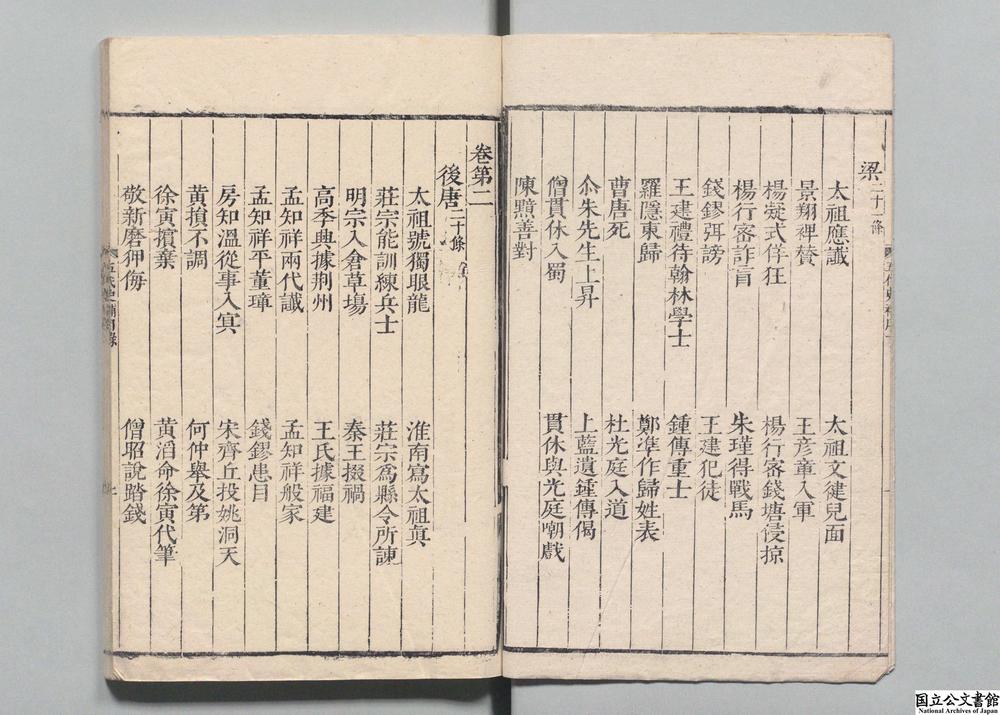 梁二十一條
太祖應讖 太祖文健兒面
景翔裨賛 王彦章入軍
楊凝式佯狂 楊行密錢塘侵掠
楊行密詐盲 朱瑾得戰馬
錢鏐弭謗 王建犯徒
王建禮待翰林學士 鍾傳重士
羅隱東歸 鄭準作歸姓表
曹唐死 杜光庭入道
尒朱先生上昇 上藍遺鍾傳偈
僧貫休入蜀 貫休與光庭嘲戲
陳黯善對
卷第二
後唐二十條
太祖號獨眼龍 淮南寫太祖眞
莊宗能訓練兵士 莊宗爲縣令所諫
明宗入倉草場 秦王掇禍
高季興據荆州 王氏據福建
孟知祥兩代讖 孟知祥般家
孟知祥平董璋 錢鏐患目
房知溫從事入㝠 宋齊丘投姚洞天
黄損不調 何仲舉及第
徐寅擯棄 黄滔命徐寅代筆
敬新磨狎侮 僧昭說踏錢
国立公文書館
National Archives of Japan